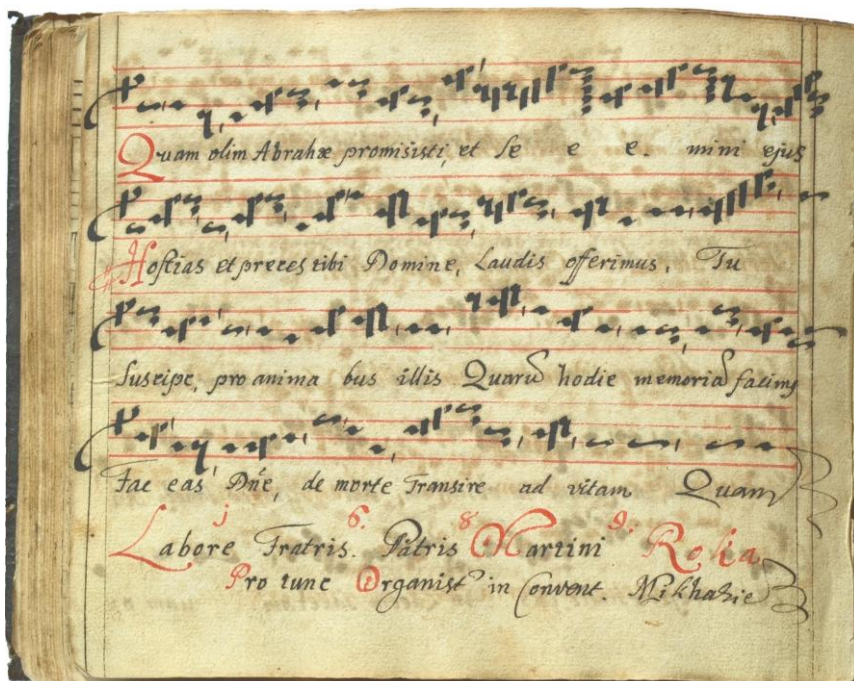 Quam olim Abrahæ promisisti, et Se e e. mini ejus
Hostias et preces tibi Domine, Laudis offerimus, Tu
Suscipe, pro anima bus illis Quarũ hodie memoriã facimꝰ
Fac eas Dñe, de morte Transire ad vitam Quam
j 6. 8. 9.
Labore Fratris. Patris Martini Rolia
Pro tunc Organist in Convent. Mikhazie